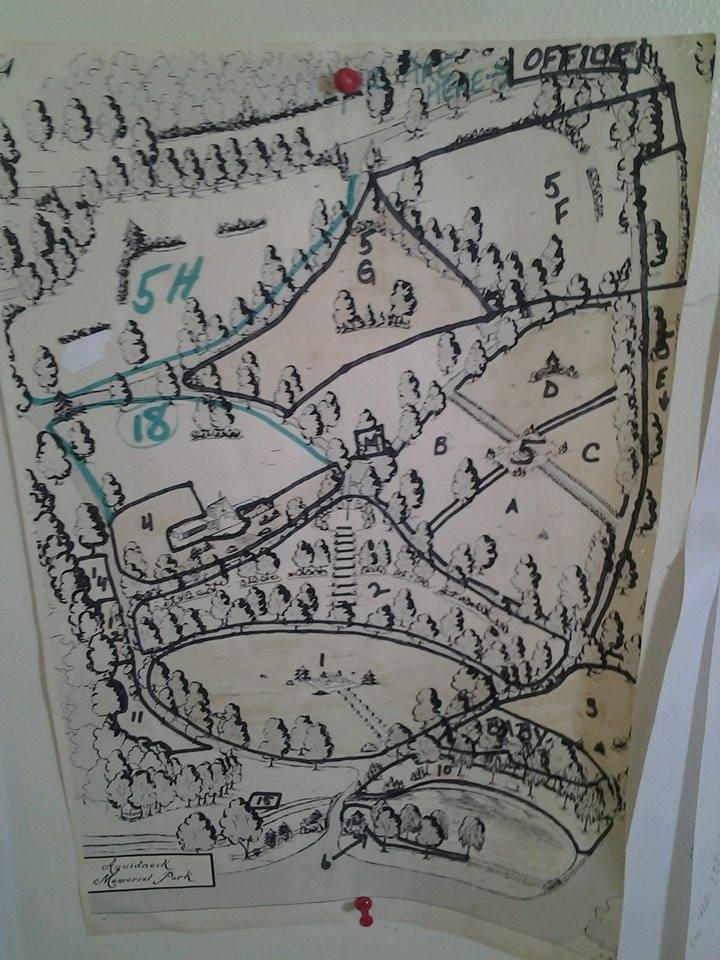 OFFICE
HERE
5
F
5
G
5H
18
M
D
B
5
C
E
A
4
14
2
1
3
11
BABY
10
15
6
Aquidneck
Memorial Park